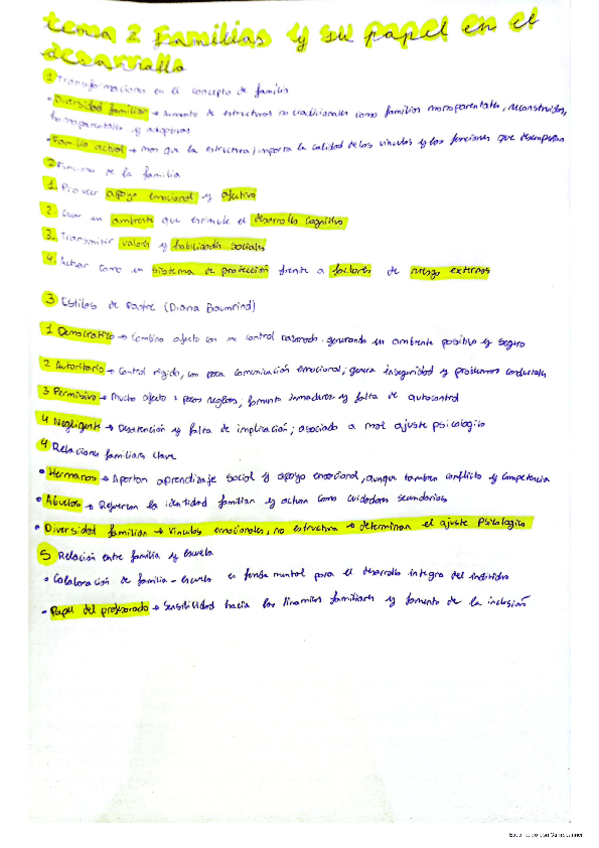 tema 2 Familias y su papel en el
desarrollo
1 Transformaciones en el concepto de familia
• Diversidad familiar → Aumento de estructuras no tradicionales como familias monoparentales, reconstruidas,
homoparentales y adoptivas
• Familia actual → Mas que la estructura, importa la calidad de los vinculos y las funciones que desempeñan
2 Funciones de la familia
1. Proveer apoyo emocional y afectivo
2. Crear un ambiente que estimule el desarrollo cognitivo
3. Transmitir valores y habilidades sociales
4. Actuar como un sistema de protección frente a factores de riesgo externos
3 Estilos de (Diana Baumrind)
1 Democratico → Combina afecto con un control razonado. generando un ambiente positivo y seguro
2 Autoritario → Control rigido, con poca comunicación emocional; genera inseguridad y problemas conductuales
3 Permisivo → Mucho afecto + pocas reglas; fomenta inmadurez y falta de autocontrol
4 Negligente → Desatención y falta de implicación; asociado a mal ajuste psicologico
4 Relaciones familiares clave
• Hermanos → Aportan aprendizaje social y apoyo emocional, aunque tambien conflicto y competencia
• Abuelos → Refuerzan la identidad familiar y actuan como cuidadores secundarios
• Diversidad familiar → Vinculos emocionales, no estructura → determinan el ajuste Psicologico
5 Relación entre familia y escuela
• Colaboración de familia - escuela es fundamental para el desarrollo integro del individuo
• Papel del profesorado → Sensibilidad hacia las dinamicas familiares y fomento de la inclusión